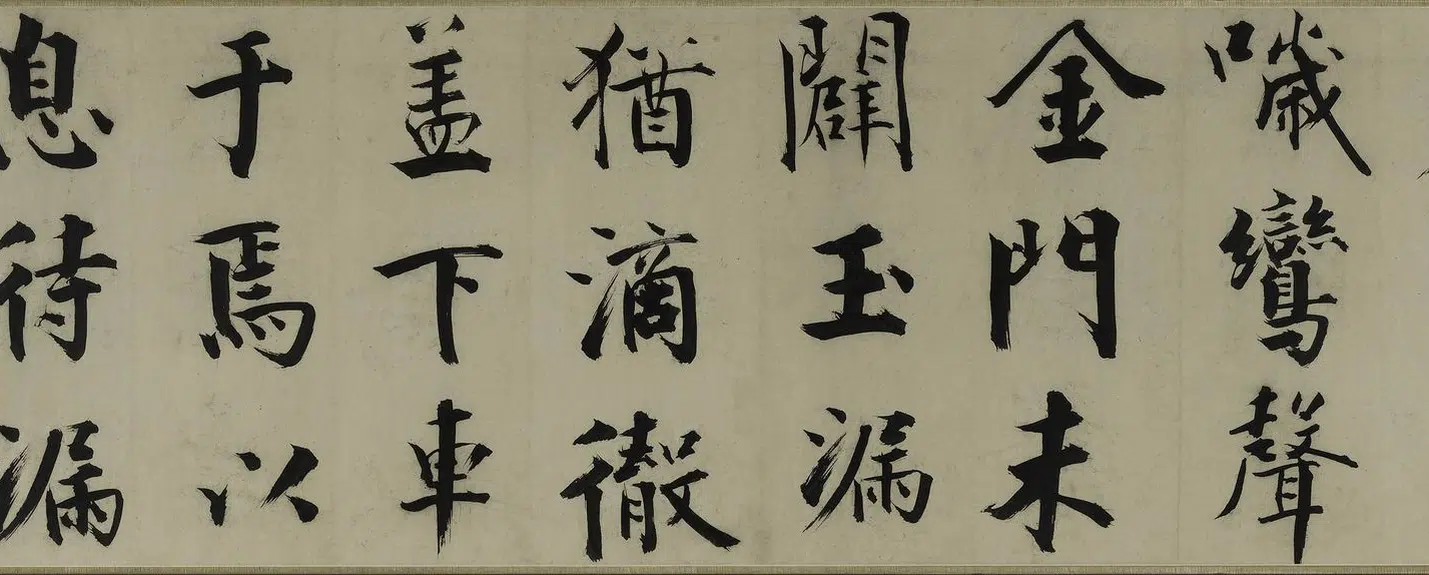 噦鸞聲
金門未
闢玉漏
猶滴徹
盖下車
于焉以
息待漏